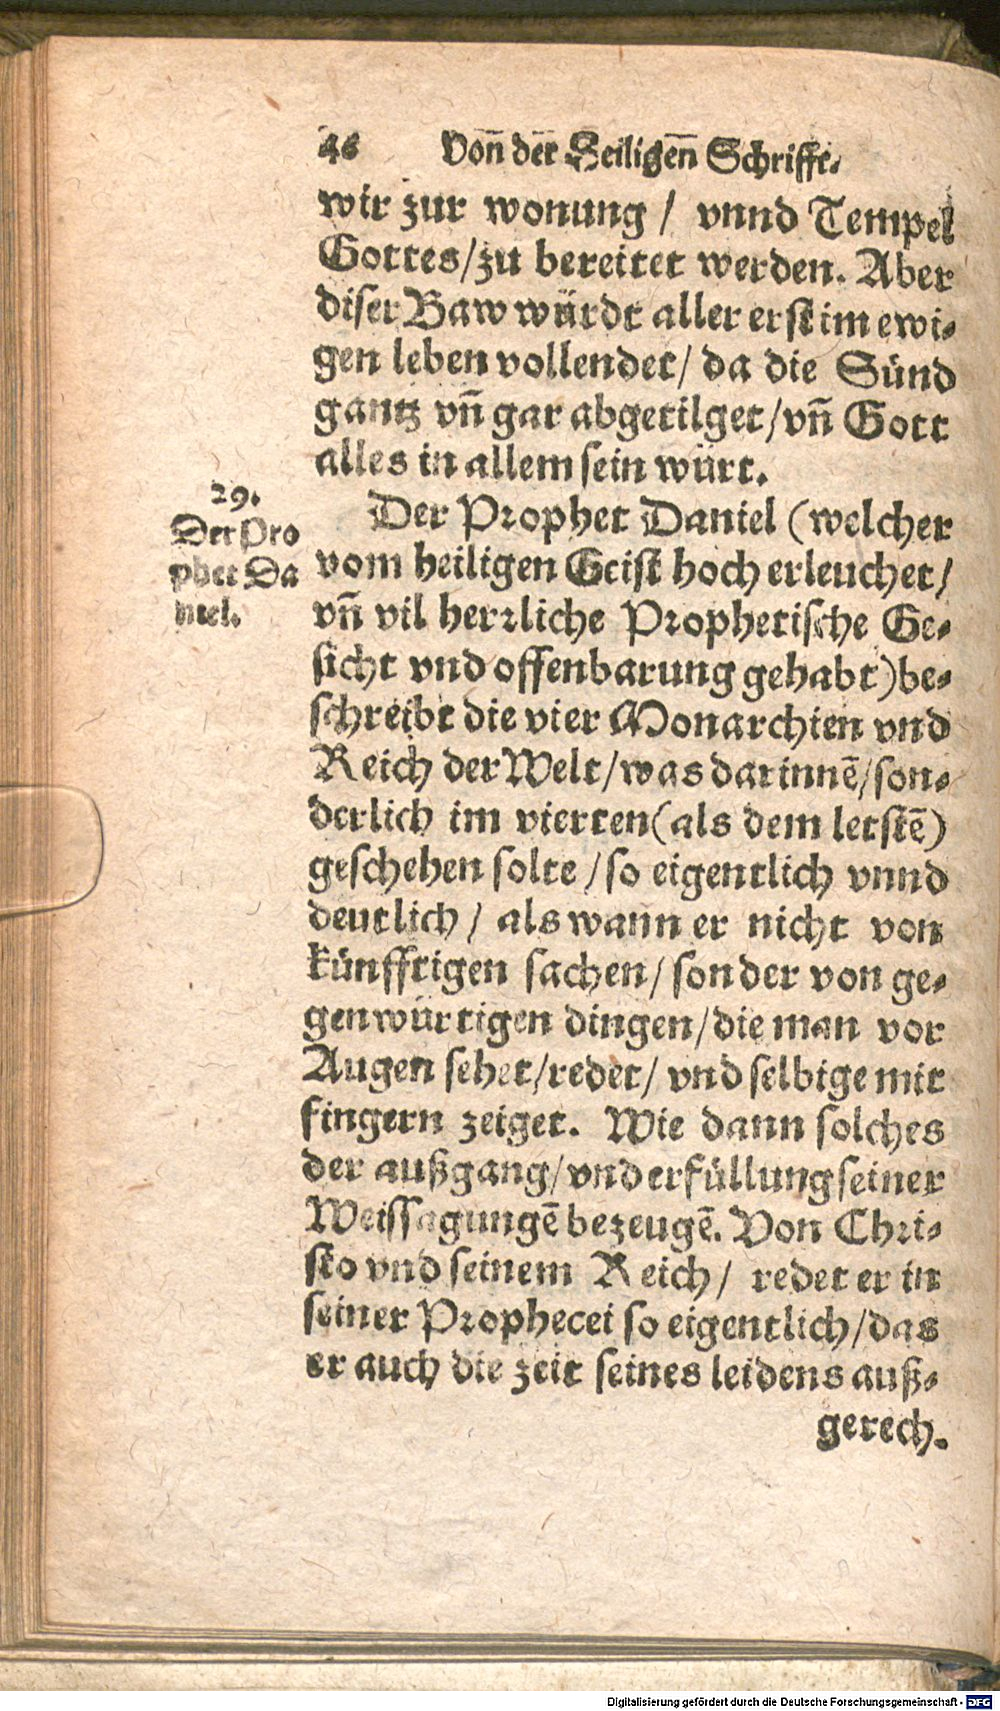 46 Voñ der Heiligeñ Schrifft.
wir zur wonung / vnnd Tempel
Gottes/zu bereitet werden. Aber
diser Baw würdt aller erst im ewi-
gen leben vollendet/ da die Sünd
gantz vñ gar abgetilget/vñ Gott
alles in allem sein würt.
29.
Der Pro
phet Da
niel.
Der Prophet Daniel (welcher
vom heiligen Geist hoch erleuchet/
vñ vil herrliche Prophetische Ge-
sicht vnd offenbarung gehabt) be-
schreibt die vier Monarchien vnd
Reich der Welt/was darinnẽ/son-
derlich im vierten (als dem letstẽ)
geschehen solte /so eigentlich vnnd
deutlich/ als wann er nicht von
künfftigen sachen/sonder von ge-
genwürtigen dingen/die man vor
Augen sehet/redet/ vnd selbige mit
fingern zeiget. Wie dann solches
der außgang/vnd erfüllung seiner
Weissagungẽ bezeugẽ. Von Chri-
sto vnd seinem Reich/ redet er in
seiner Prophecei so eigentlich/das
er auch die zeit seines leidens auß-
gerech.
Digitalisierung gefördert durch die Deutsche Forschungsgemeinschaft - DFG